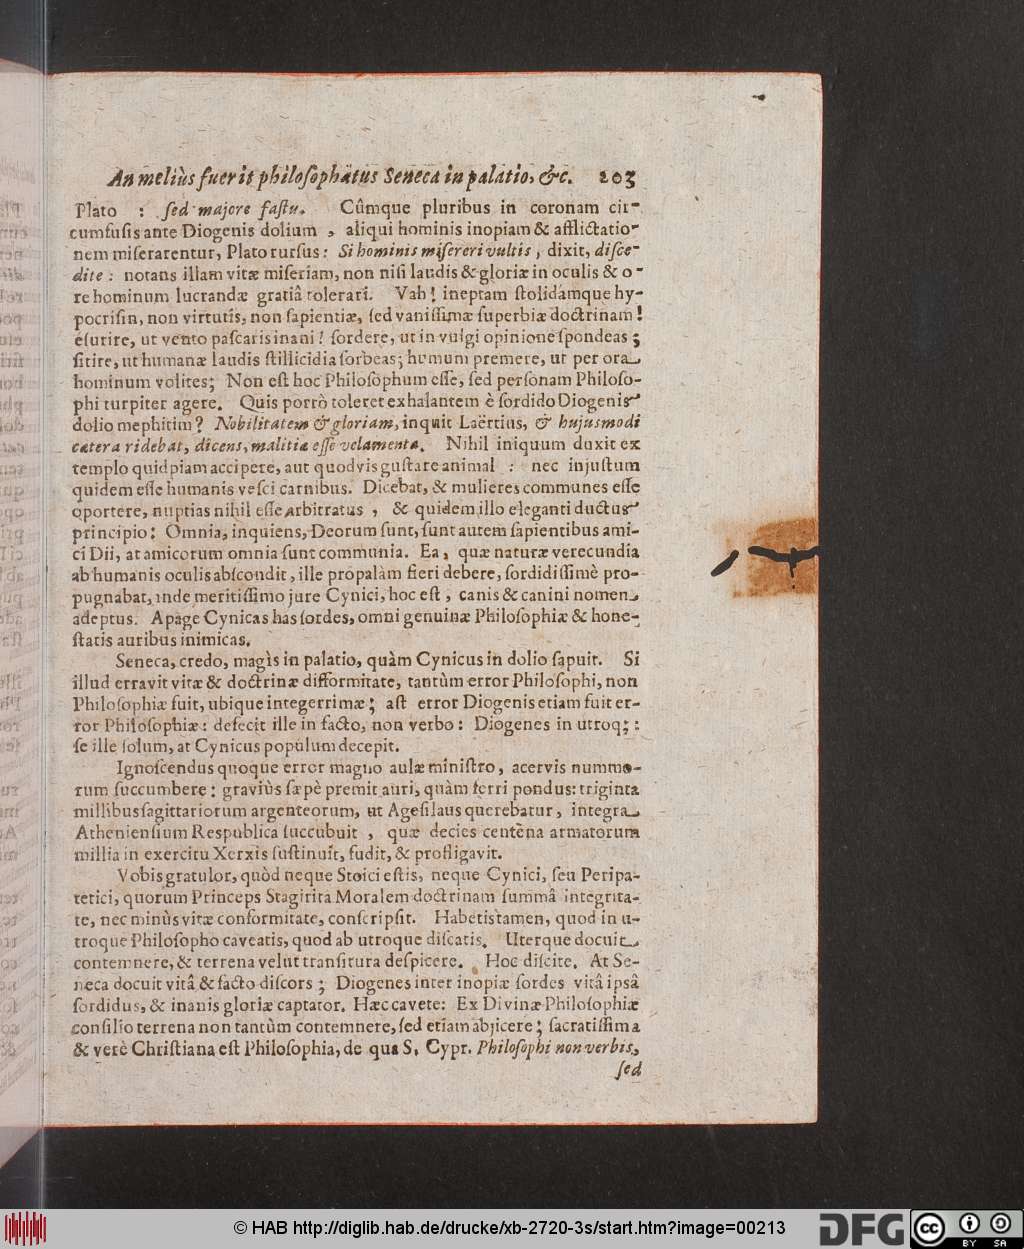 An meliùs fuerit philoſophatus Seneca in palatio, &c. 203
Plato : ſed majore faſtu. Cûmque pluribus in coronam cir-
cumfuſis ante Diogenis dolium , aliqui hominis inopiam & afflictatio-
nem miſerarentur, Plato rurſus: Si hominis miſereri vultis, dixit, diſce-
dite : notans illam vitæ miſeriam, non niſi laudis & gloriæ in oculis & o-
re hominum lucrandæ gratiâ tolerari. Vah! ineptam ſtolidámque hy-
pocriſin, non virtutis, non ſapientiæ, ſed vaniſſimæ ſuperbiæ doctrinam!
eſurire, ut vento paſcaris inani! ſordere, ut in vulgi opinione ſpondeas ;
ſitire, ut humanæ laudis ſtillicidia ſorbeas; humum premere, ut per ora
hominum volites; Non eſt hoc Philoſophum eſſe, ſed perſonam Philoſo-
phi turpiter agere. Quis porrò toleret exhalantem è ſordido Diogenis
dolio mephitim? Nobilitatem & gloriam, inquit Laërtius, & hujusmodi
cætera ridebat, dicens, malitiæ eſſe velamenta. Nihil iniquum duxit ex
templo quidpiam accipere, aut quodvis guſtare animal : nec injuſtum
quidem eſſe humanis veſci carnibus. Dicebat, & mulieres communes eſſe
oportere, nuptias nihil eſſe arbitratus , & quidem illo eleganti ductus
principio: Omnia, inquiens, Deorum ſunt, ſunt autem ſapientibus ami-
ci Dii, at amicorum omnia ſunt communia. Ea, quæ naturæ verecundia
ab humanis oculis abſcondit, ille propalàm fieri debere, ſordidiſſimè pro-
pugnabat, inde meritiſſimo jure Cynici, hoc eſt , canis & canini nomen
adeptus. Apage Cynicas has ſordes, omni genuinæ Philoſophiæ & hone-
ſtatis auribus inimicas.
Seneca, credo, magìs in palatio, quàm Cynicus in dolio ſapuit. Si
illud erravit vitæ & doctrinæ difformitate, tantùm error Philoſophi, non
Philoſophiæ fuit, ubique integerrimæ; aſt error Diogenis etiam fuit er-
ror Philoſophiæ: defecit ille in facto, non verbo: Diogenes in utroq; :
ſe ille ſolum, at Cynicus populum decepit.
Ignoſcendus quoque error magno aulæ miniſtro, acervis nummo-
rum ſuccumbere: graviùs ſæpè premit auri, quàm ferri pondus: triginta
millibus ſagittariorum argenteorum, ut Ageſilaus querebatur, integra
Athenienſium Respublica ſuccubuit , quæ decies centena armatorum
millia in exercitu Xerxis ſuſtinuit, fudit, & profligavit.
Vobis gratulor, quòd neque Stoici eſtis, neque Cynici, ſeu Peripa-
tetici, quorum Princeps Stagirita Moralem doctrinam ſummâ integrita-
te, nec minùs vitæ conformitate, conſcripſit. Habetis tamen, quod in u-
troque Philoſopho caveatis, quod ab utroque diſcatis. Uterque docuit
contemnere, & terrena velut tranſitura deſpicere. Hoc diſcite. At Se-
neca docuit vitâ & facto diſcors ; Diogenes inter inopiæ ſordes vitâ ipsâ
ſordidus, & inanis gloriæ captator. Hæc cavete: Ex Divinæ Philoſophiæ
conſilio terrena non tantùm contemnere, ſed etiam abjicere; ſacratiſſima
& verè Chriſtiana eſt Philoſophia, de qua S. Cypr. Philoſophi non verbis,
ſed
© HAB http://diglib.hab.de/drucke/xb-2720-3s/start.htm?image=00213
DFG
cc
BY SA